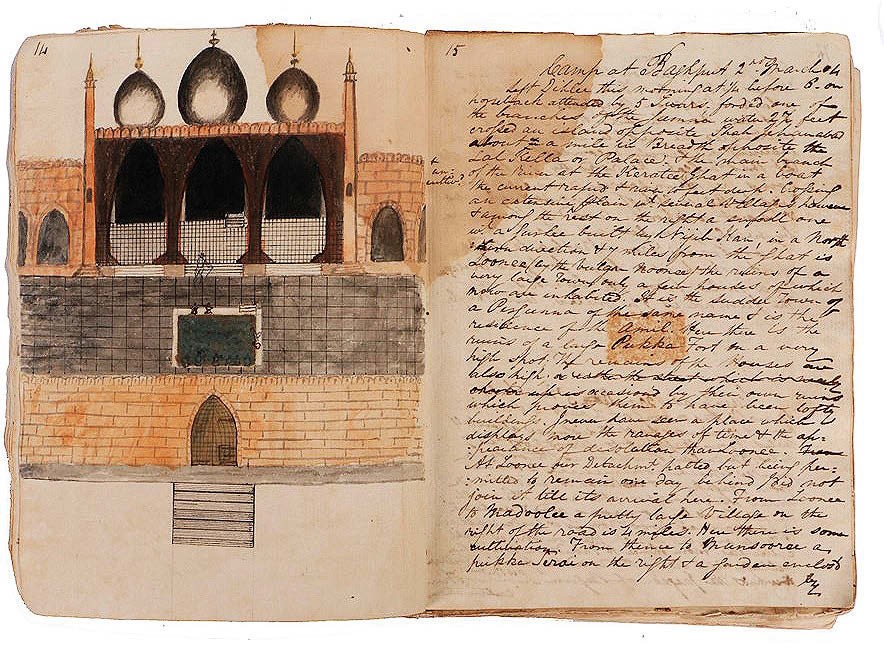 14
15
Camp at Baghput 2nd March 04
Left Dihlee this morning at ¼ before 6 on
horseback attended by 5 Suwars. forded one of
the branches of the Jumna water 2½ feet
crossed an island opposite Shah Jehanabad
about a mile in breadth opposite the
Lal Kella or Palace. & the main branch
of the river at the Ghat in a boat
the current rapid & two feet deep. Crossing
an extensive plain wt. several Villages however
& among the rest on the right a small one
wt. a built by Nijib Kan, in a North
direction & 7 miles from the Ghat is
Loonee (by the vulgar Noonee) the ruins of a
very large town only a few houses of which
now are inhabited. It is the sudder town of
a Pergunna of the same name & is the
residence of the Amil. Here there is the
ruins of a large Pukka Fort on a very
high spot. The remains of the Houses are
also high. or rather the
is occasiond by their own ruins
which proves them to have been lofty
buildings. I never have seen a place which
displays more the ravages of time & the ap-
-pearance of desolation than Loonee.
At Loonee our Detachmt. halted but being per-
mitted to remain one day behind I did not
join it till its arrival here. From Loonee
to Madoolee a pretty large Village on the
right of the road is 4 miles. Here there is some
cultivation. From thence to Munsooree a
pukka Serai on the right & a garden enclosd
by